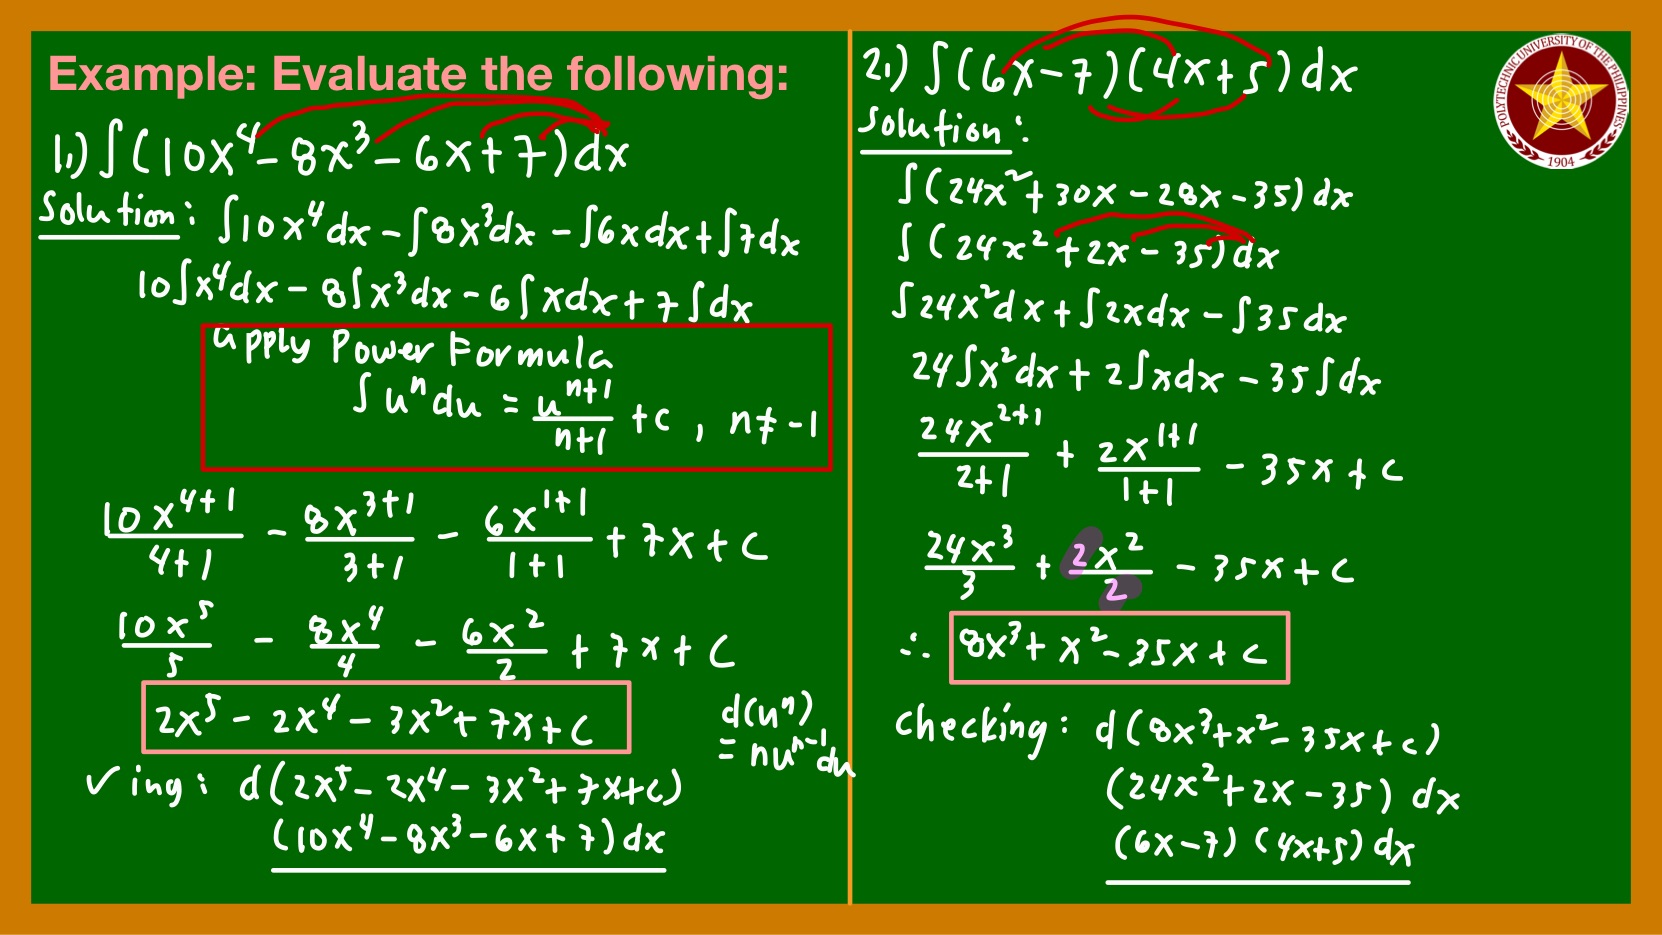 Example: Evaluate the following:
1.) ∫(10x⁴ - 8x³ - 6x + 7)dx
Solution: ∫10x⁴dx - ∫8x³dx - ∫6xdx + ∫7dx
10∫x⁴dx - 8∫x³dx - 6∫xdx + 7∫dx
apply Power Formula
∫uⁿdu = uⁿ⁺¹/n+1 + c , n ≠ -1
10x⁴⁺¹/4+1 - 8x³⁺¹/3+1 - 6x¹⁺¹/1+1 + 7x + C
10x⁵/5 - 8x⁴/4 - 6x²/2 + 7x + C
2x⁵ - 2x⁴ - 3x² + 7x + C
d(uⁿ)
= nuⁿ⁻¹du
✓ing: d(2x⁵ - 2x⁴ - 3x² + 7x + c)
(10x⁴ - 8x³ - 6x + 7)dx
2.) ∫(6x-7)(4x+5)dx
Solution:
∫(24x² + 30x - 28x - 35)dx
∫(24x² + 2x - 35)dx
∫24x²dx + ∫2xdx - ∫35dx
24∫x²dx + 2∫xdx - 35∫dx
24x²⁺¹/2+1 + 2x¹⁺¹/1+1 - 35x + C
24x³/3 + 2x²/2 - 35x + C
∴ 8x³ + x² - 35x + c
checking: d(8x³ + x² - 35x + c)
(24x² + 2x - 35) dx
(6x-7) (4x+5) dx
POLYTECHNIC UNIVERSITY OF THE PHILIPPINES
1904